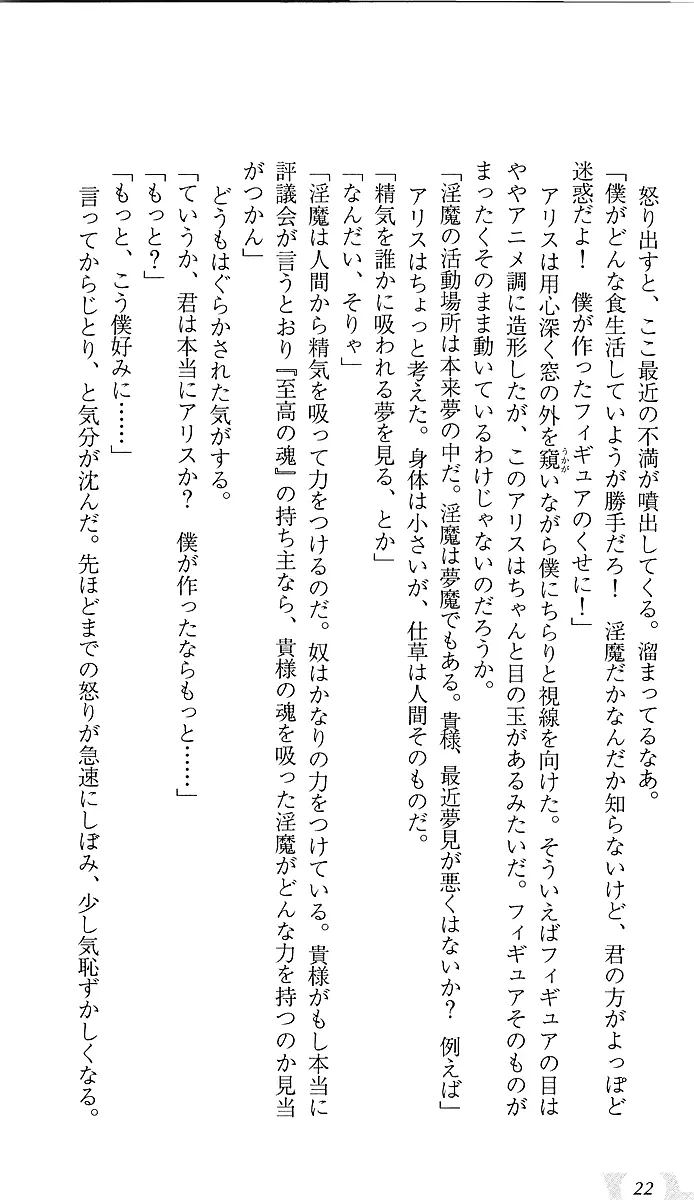 怒り出すと、ここ最近の不満が噴出してくる。溜まってるなあ。
「僕がどんな食生活していようが勝手だろ！　淫魔だかなんだか知らないけど、君の方がよっぽど
迷惑だよ！　僕が作ったフィギュアのくせに！」
アリスは用心深く窓の外を窺いながら僕にちらりと視線を向けた。そういえばフィギュアの目は
うかが
ややアニメ調に造形したが、このアリスはちゃんと目の玉があるみたいだ。フィギュアそのものが
まったくそのまま動いているわけじゃないのだろうか。
「淫魔の活動場所は本来夢の中だ。淫魔は夢魔でもある。貴様、最近夢見が悪くはないか？　例えば」
アリスはちょっと考えた。身体は小さいが、仕草は人間そのものだ。
「精気を誰かに吸われる夢を見る、とか」
「なんだい、そりゃ」
「淫魔は人間から精気を吸って力をつけるのだ。奴はかなりの力をつけている。貴様がもし本当に
評議会が言うとおり『至高の魂』の持ち主なら、貴様の魂を吸った淫魔がどんな力を持つのか見当
がつかん」
どうもはぐらかされた気がする。
「ていうか、君は本当にアリスか？　僕が作ったならもっと……」
「もっと？」
「もっと、こう僕好みに……」
言ってからじとり、と気分が沈んだ。先ほどまでの怒りが急速にしぼみ、少し気恥ずかしくなる。
22